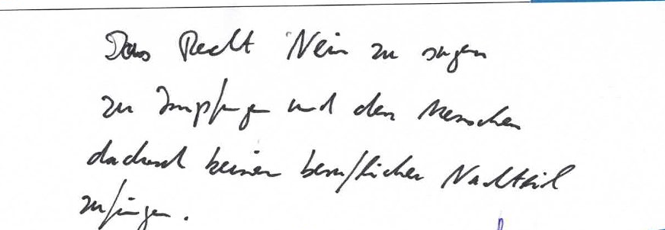 Das Recht Nein zu sagen
zu Impfungen und den Menschen
dadurch keinen beruflichen Nachteil
zufügen.